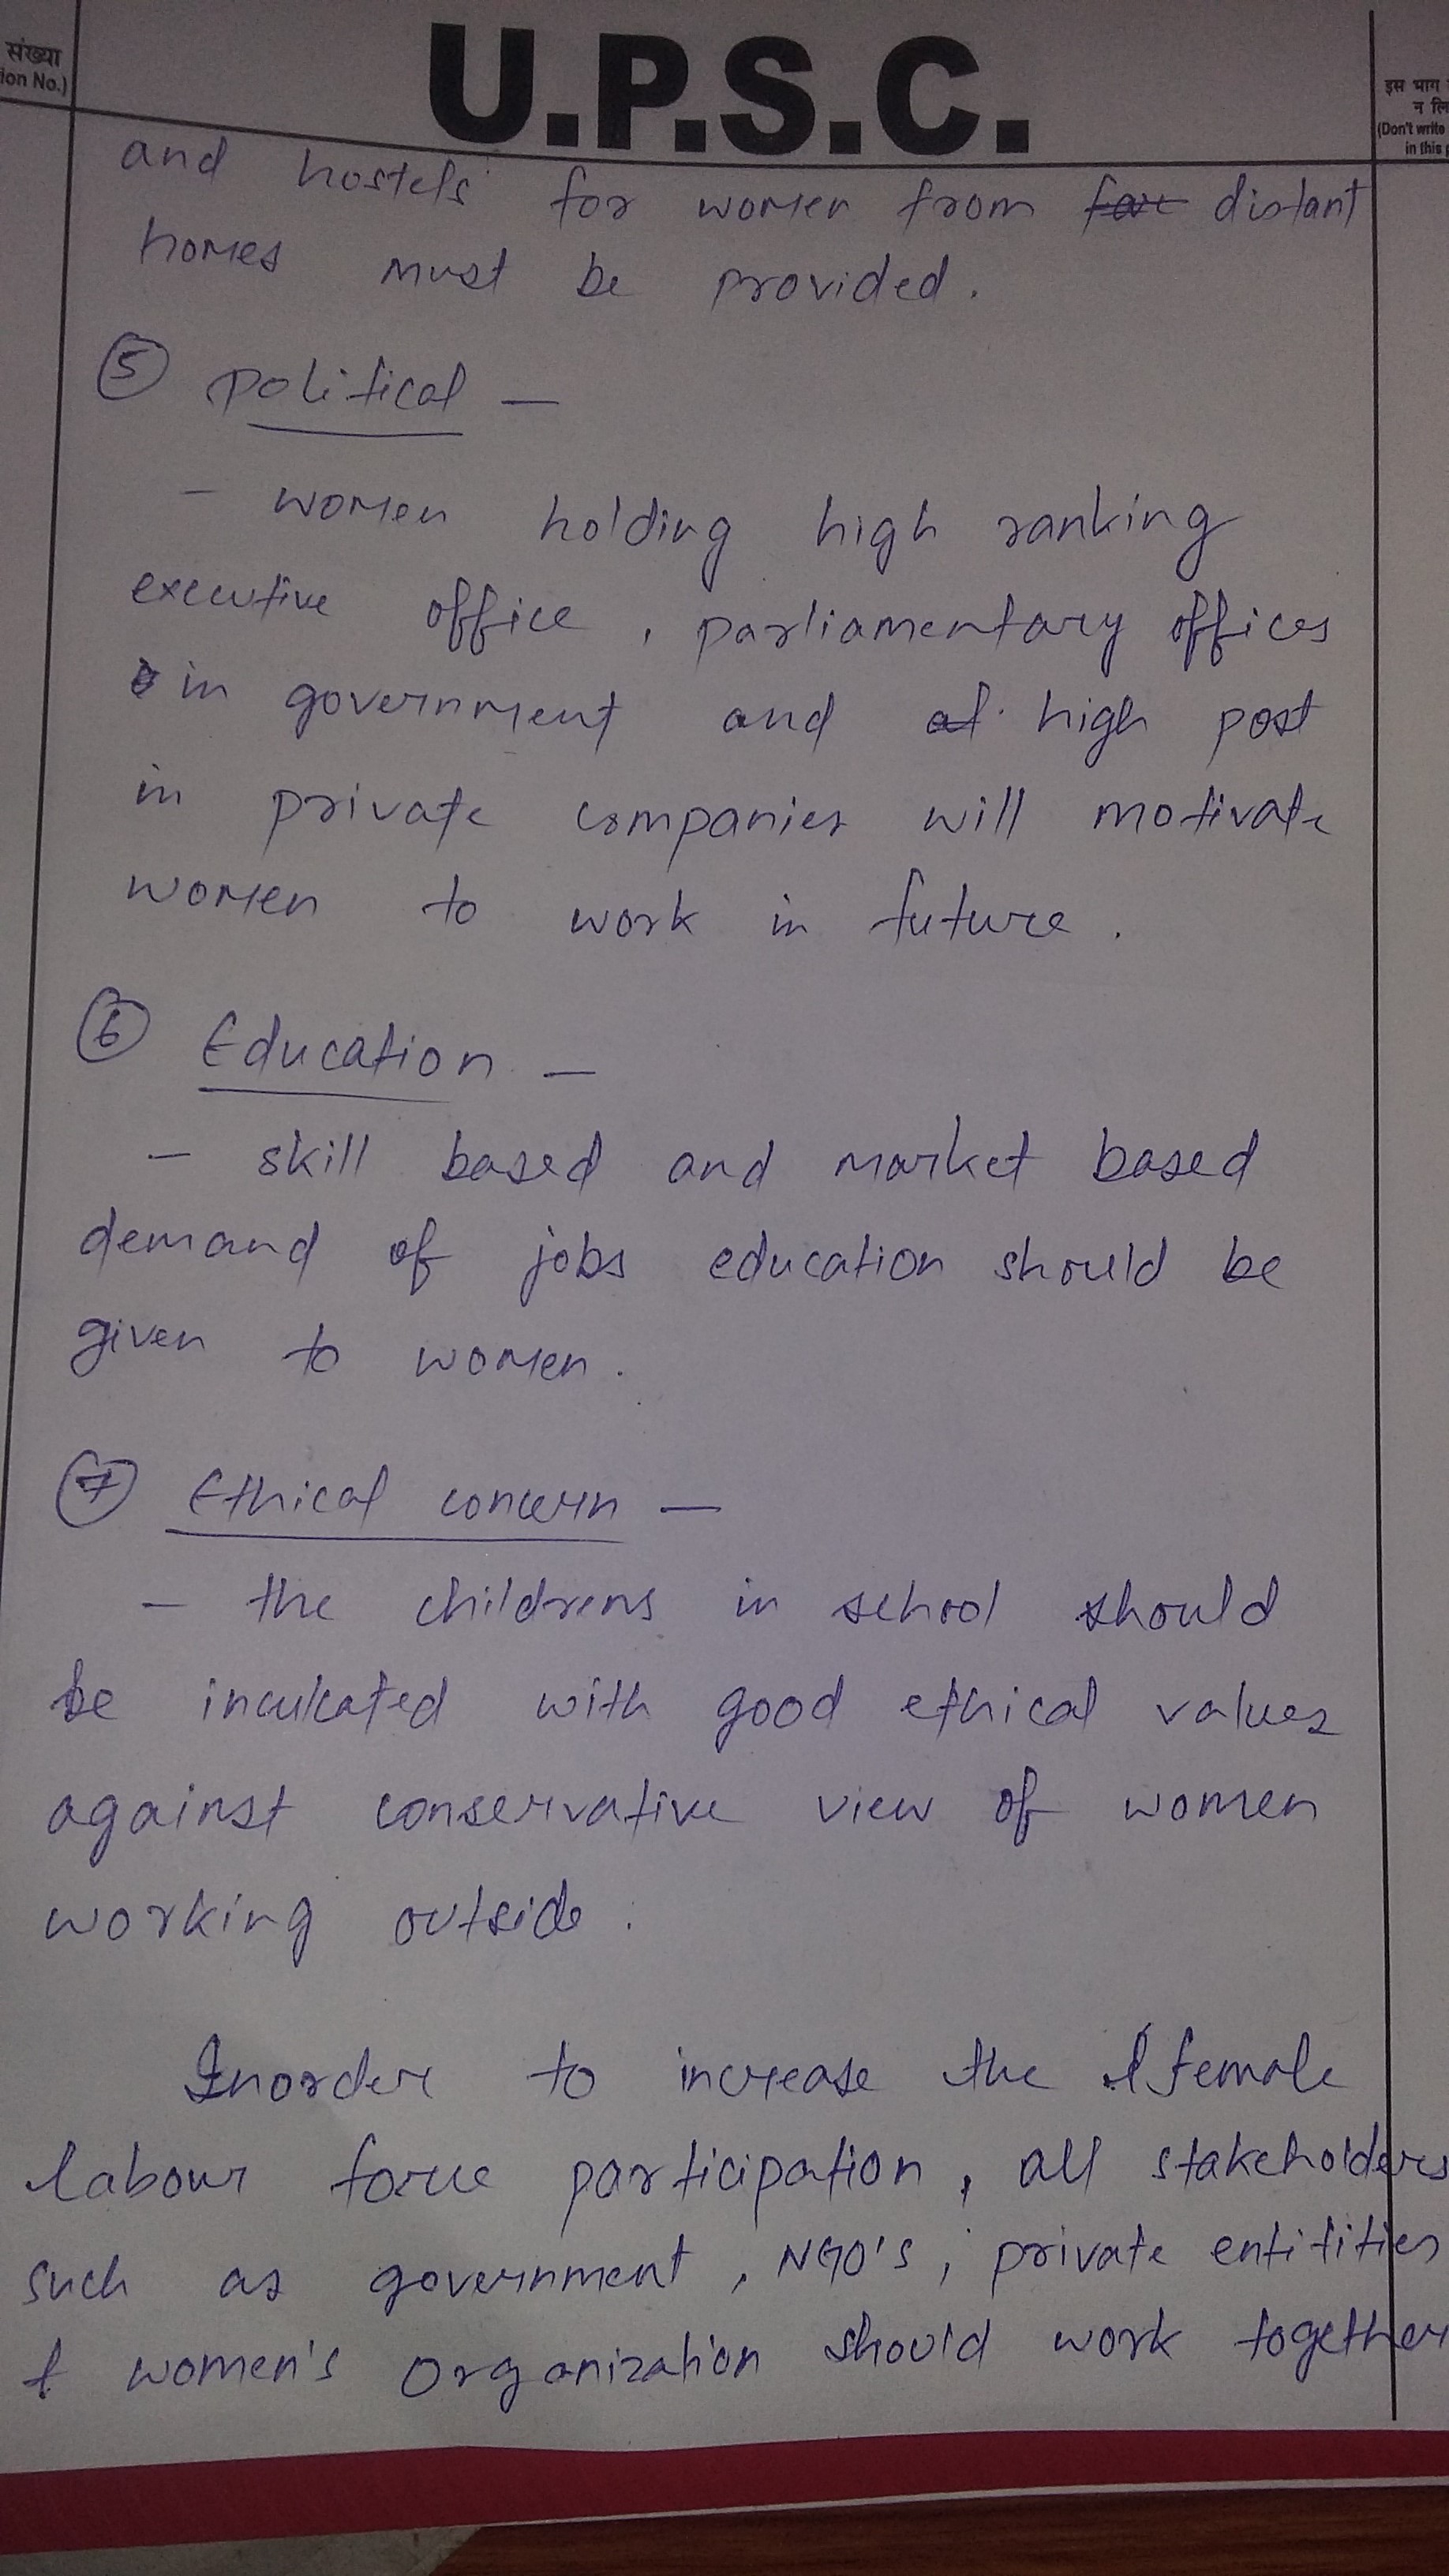 संख्या
ion No.)
U.P.S.C.
इस भाग
(Don't write
in this
and hostels for women from far distant
homes must be provided.
5 political —
- women holding high ranking
executive office, parliamentary offices
in government and at high post
in private companies will motivate
women to work in future.
6 Education —
- skill based and market based
demand of jobs education should be
given to women.
7 Ethical concern —
- the childrens in school should
be inculcated with good ethical values
against conservative view of women
working outside.
Inorder to increase the female
labour force participation, all stakeholders
such as government, NGO's, private entitities
& women's organization should work together